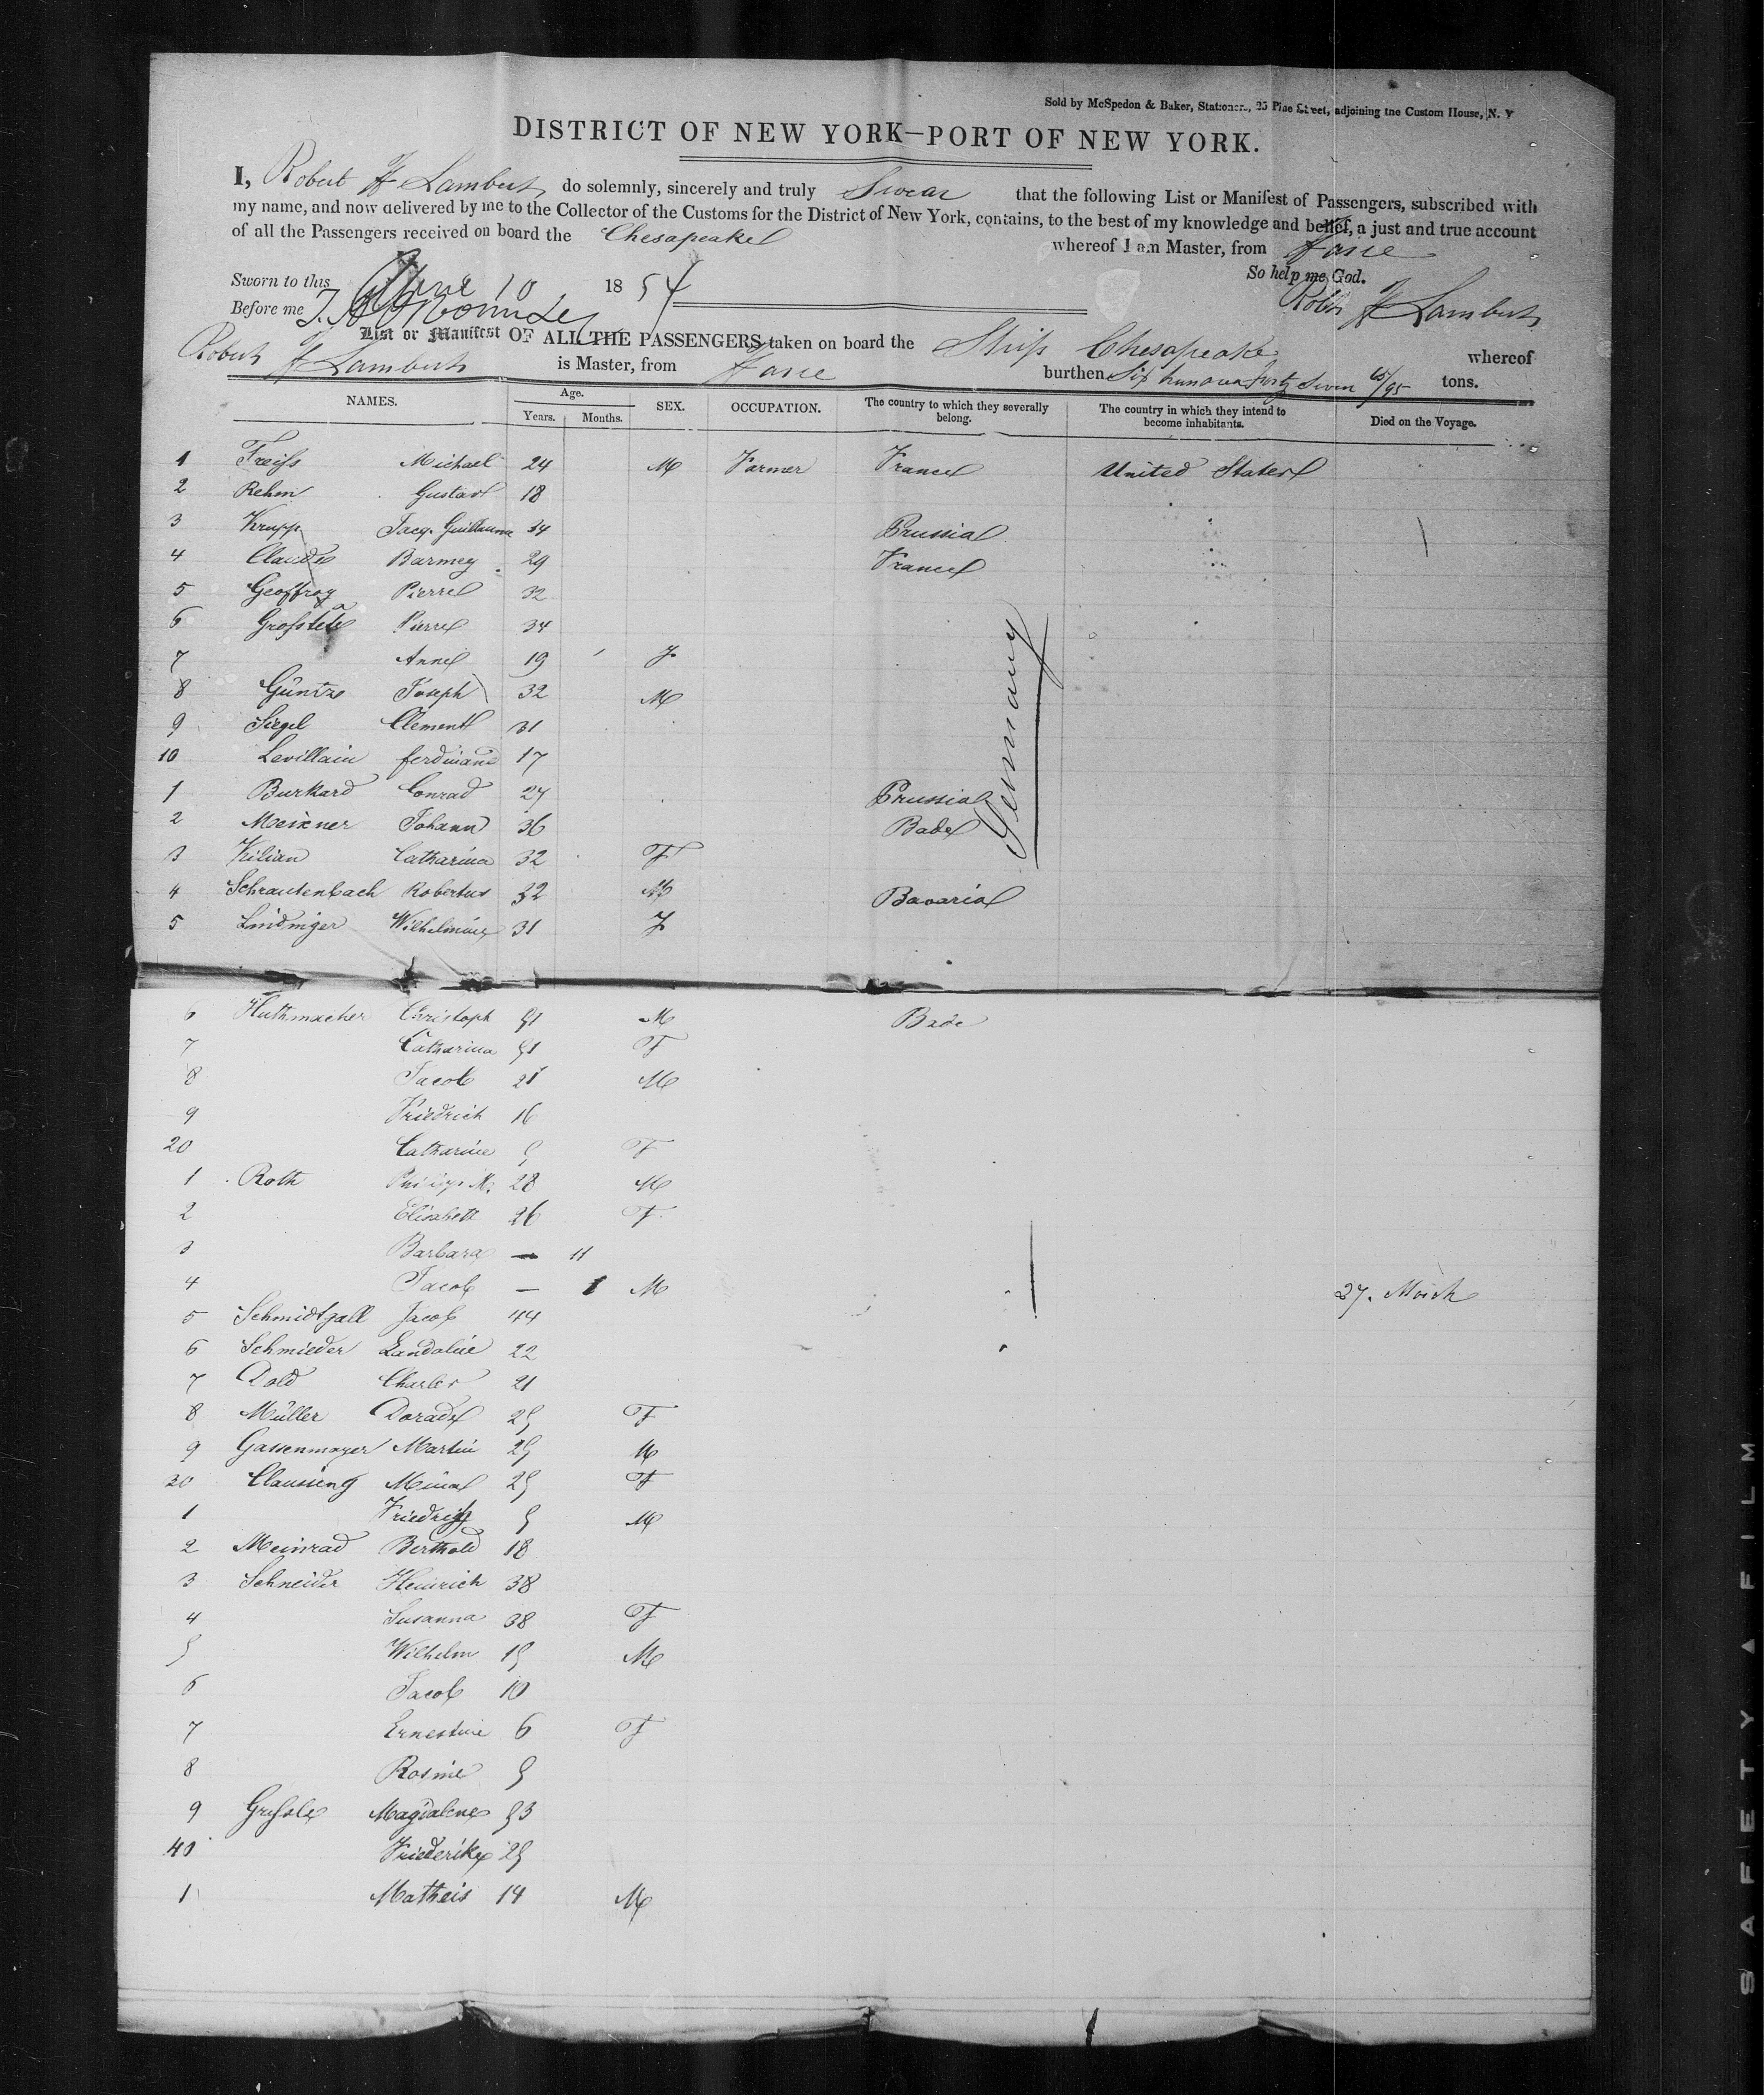 Sold by McSpedon & Baker, Stationers, 25 Pine Street, adjoining the Custom House, N. Y
DISTRICT OF NEW YORK—PORT OF NEW YORK.
I, Robert F Lambert do solemnly, sincerely and truly Swear that the following List or Manifest of Passengers, subscribed with
my name, and now delivered by me to the Collector of the Customs for the District of New York, contains, to the best of my knowledge and belief, a just and true account
of all the Passengers received on board the Chesapeake whereof I am Master, from Havre
So help me God.
Sworn to this June 10 1854
Before me Robt F Lambert
List or Manifest OF ALL THE PASSENGERS taken on board the Ship Chesapeake whereof
Robert F Lambert is Master, from Havre burthen Six hundred forty Seven 65/95 tons.
NAMES. Age. Years. Months. SEX. OCCUPATION. The country to which they severally belong. The country in which they intend to become inhabitants. Died on the Voyage.
1 Freiss Michael 24 M Farmer France United States
2 Rehm Gustav 18
3 Krupp Jacq. Guillaume 34 Prussia
4 Claude Barmey 29 France
5 Geoffroy Pierre 32
6 Grosstete Pierre 34
7 Anne 19 F
8 Güntze Joseph 32 M
9 Siegel Clement 31
10 Levillain ferdinand 17
Germany
1 Burkard Conrad 27 Prussia
2 Meixner Johann 36 Bade
3 Kilian Catharina 32 F
4 Schrautenbach Robertus 32 M Bavaria
5 Lindinger Wilhelmine 31 F
6 Huthmacher Christoph 51 M Bade
7 Catharina 51 F
8 Jacob 21 M
9 Friedrich 16
20 Catharine 5 F
1 Roth Philipp M. 28 M
2 Elisabeth 26 F
3 Barbara — 11
4 Jacob — 1 M 27.
5 Schmidtgall Jacob 44
6 Schmieder Landolin 22
7 Dold Charles 21
8 Müller Dorade 25 F
9 Gassenmayer Martin 25 M
30 Clausing Mina 25 F
1 Friedrich 5 M
2 Meinrad Berthold 18
3 Schneider Heinrich 38
4 Susanna 38 F
5 Wilhelm 15 M
6 Jacob 10
7 Ernestine 6 F
8 Rosine 5
9 Grussle Magdalene 53
40 Friederike 25
1 Matheis 14 M
SAFETY ▲ FILM